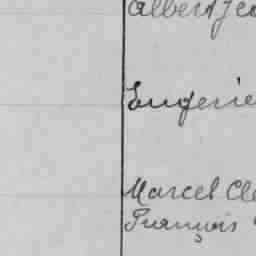 Albert Jea
Eugenie
Marcel Cle
François